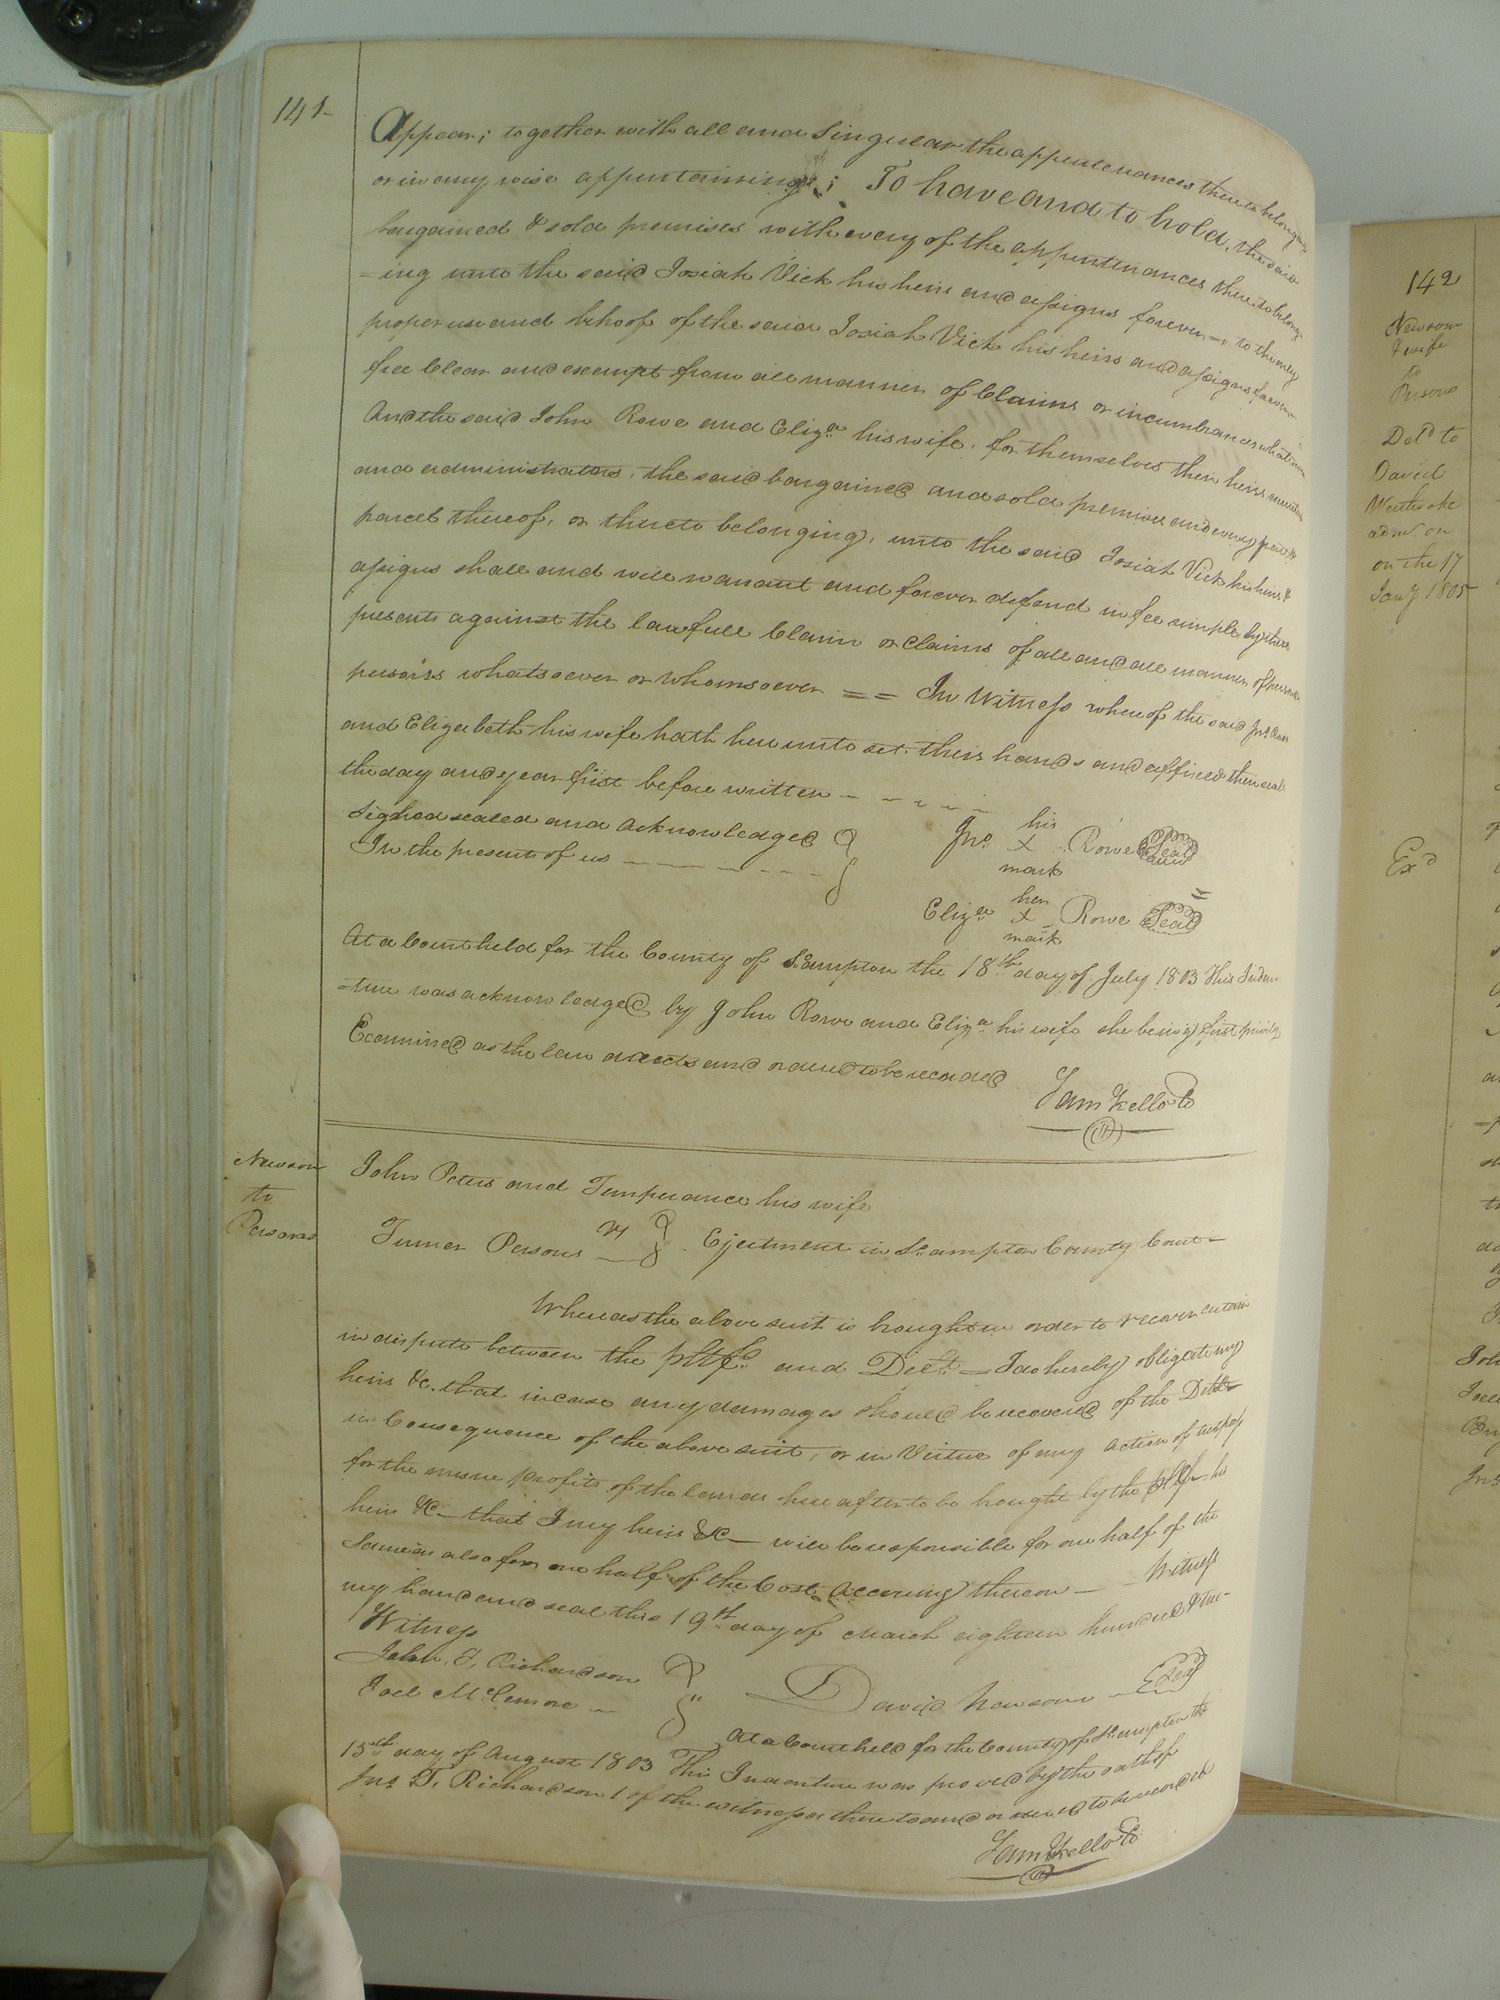 141
Appear; together with all and Singular the appurtenances thereto belonging
or in any wise appurtaining; To have and to hold, the said
bargained & sold premises with every of the appurtenances thereto belong
=ing unto the said Josiah Vick his heirs and assigns forever = to the only
proper use and behoof of the said Josiah Vick his heirs and assigns forever
free Clear and exempt from all manner of Claims or incumbrances whatsoever
And the said John Rowe and Eliza his wife, for themselves their heirs executors
and administrators, the said bargained and sold premises and every part &
parcel thereof, or thereto belonging, unto the said Josiah Vick his heirs &
assigns shall and will warrant and forever defend in fee simple by these
presents against the lawfull Claim or Claims of all and all manner of person
persons whatsoever or whomsoever == In Witness whereof the said Jno Rowe
and Elizabeth his wife hath hereunto set their hands and affixed their seals
the day and year first before written
Signed sealed and acknowledged
In the presents of us
Jno. his X mark Rowe Seal
Eliza her X mark Rowe Seal
At a Court held for the County of So.ampton the 18th day of July 1803 This Inden
=ture was acknowledged by John Rowe and Eliza his wife she being first privily
Examined as the law directs and ordered to be recorded
Sam Kello Cc
Newsom
to
Persons
John Peters and Temperance his wife
vs
Turner Persons Ejectment in So.ampton County Court
Whereas the above suit is brought in order to recover certain
in dispute between the pltfs. and Deft. I do hereby obligate my
heirs &c. that incase any damages should be recovered of the Deft
in Consequence of the above suit, or in Virtue of any action of trespass
for the mesne profits of the lands here after to be brought by the pltf his
heirs &c that I my heirs &c will be responsible for one half of the
Same as also for one half of the Cost Accruing thereon Witness
my hand and seal this 19th day of March eighteen hundred &
Witness
John T. Richardson
Joel McLemore
David Newsom Seal
At a Court held for the County of So.ampton the
15th day of August 1803 This Indenture was proved by the oath of
Jno T. Richardson 1 of the witnesses thereto and ordered to be recorded
Sam Kello Cc
142
Newsom
& wife
to
Persons
Deld to
David
Westbroke
admr on
on the 17
Jany 1805
Exd